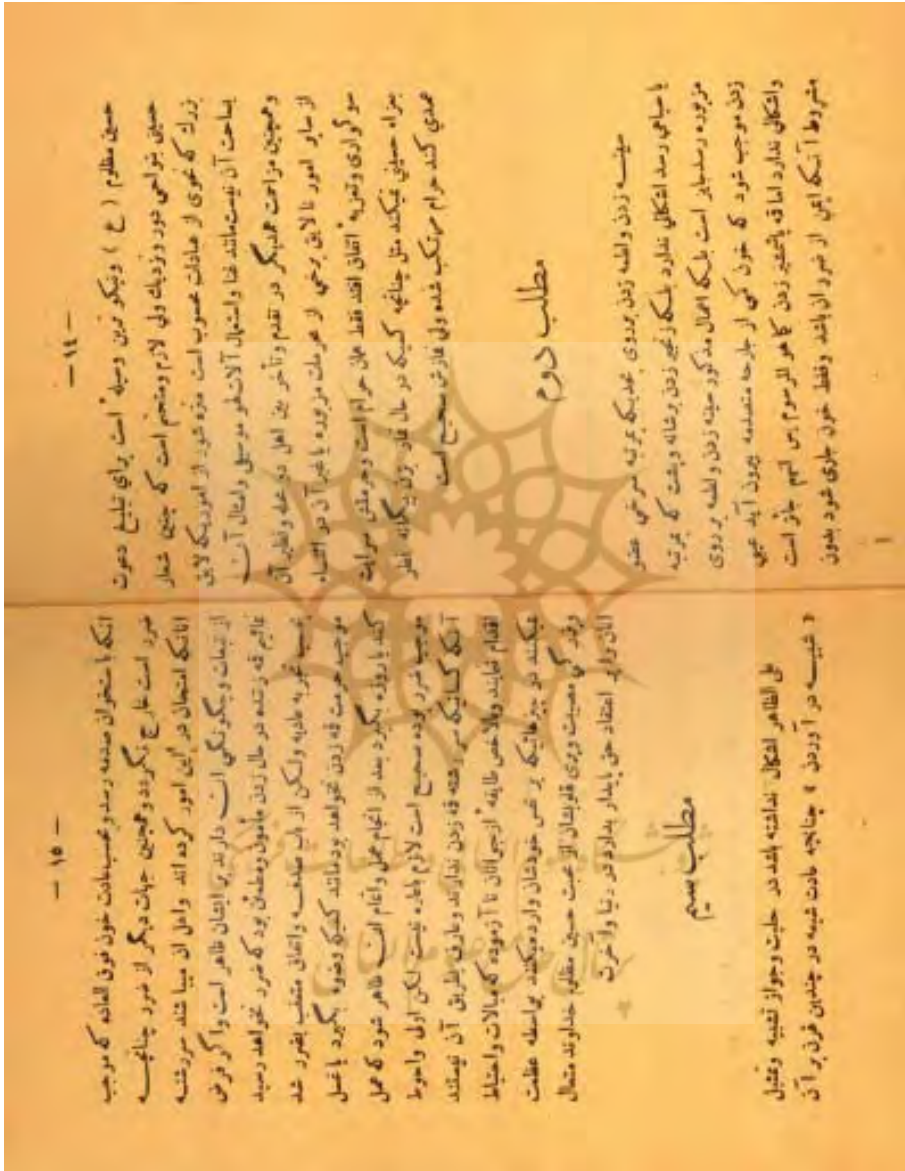 — ١٤ —
حسین مظلوم ( ع ) ونیکو ترین وسیلهٔ است برای تبلیغ دعوت
حسینی بنواحی دور ونزدیك ولی لازم ومتحتم است که چنین شعار
بزرك که نحوی از عبادات محسوب است منزه شود از اموریکه لایق
بساحت آن نیست مانند غنا واستعمال آلات لهو موسیقی وامثال آن
وهمچنین مزاحمت همدیگر در تقدم وتأخر بین اهل دو محله ونظیر آن
از سایر امور نا لایق برخی از محرمات مزبوره یا غیر آن در اثناء
سو گواری وتعزیهٔ اتفاق افتد فقط همان حرام است وحرمتش سرایت
بعزاء حسینی نمیکند مثل چنانچه کسیکه در حال نماز بزن بیگانه نظر
عمدي کند حرام مرتکب شده ولی نمازش صحیح است
مطلب دوم
سینه زدن ولطمه زدن برروی بحدیکه بمرتبه سرخی عضو
یا سیاهی رسد اشکالی ندارد بلکه زنجیر زدن برشانه وپشت که بمرتبه
مزبوره رسد جایز است بلکه اعمال مذکور سینه زدن ولطمه بر روی
زدن موجب شود که خون کمی از جارحه متصدمه بیرون آید عیبی
واشکالی ندارد اما قه یا شمشیر زدن کما هو المرسوم پس آنهم جائز است
مشروط آنکه ایمن از ضرر آن باشد وفقط خون جاری شود بدون
— ١٥ —
آنکه باستخوان صدمه رسد وبحسب عادت خون فوق العاده که موجب
ضرر است خارج نگردد وهمچنین جهات دیگر از ضرر چنانچه
آنانکه امتحان در این امور کرده اند واهل آن میبا شند سررشته
از تبعات وچگونگی آن دارند بر ایشان ظاهر است واگر فرض
نمائیم قه زننده در حال زدن مأمون ومطمئن بود که ضرر نخواهد رسید
بحسب تجربه عادیه ولکن از باب صدفه واتفاق متعقب بضرر شد
موجب حرمت قه زدن نخواهد بود مانند کسیکه وضوء بگیرد یا غسل
کند یا روزه بگیرد بعد از انجام عمل واتمام آن ظاهر شود که عمل
موجب ضرر بوده صحیح است لازم باعاده نیست لکن اولی واحوط
آنکه کسانیکه سر رشته قه زدن ندارند وعارف بطریق آن نیستند
اقدام ننمایند وبالاخص طایفهٔ از جوانان نا آزموده که مبالات واحتیاط
نمیکنند در جراحاتیکه بر نفس خودشان وارد میکنند بواسطه عظمت
وبزرگی مصیبت وپری قلوبشان از محبت حسین مظلوم خداوند متعال
آنان را بر اعتقاد حق پایدار بدارد در دنیا وآخرت
مطلب سیم
علی الظاهر اشکال نداشته باشد در حلیت وجواز تشبیه وتمثیل
( شبیه در آوردن ) چنانچه عادت شیعه در چندین قرن بر آن